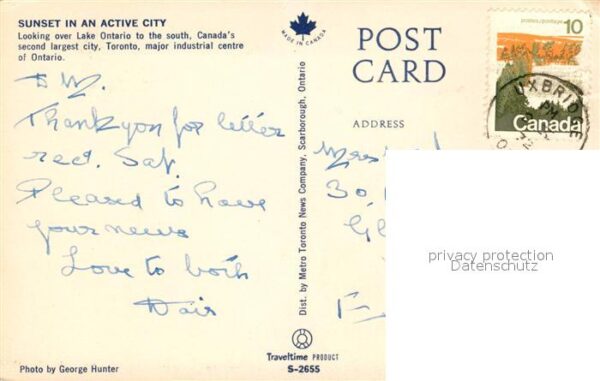 SUNSET IN AN ACTIVE CITY
Looking over Lake Ontario to the south, Canada's
second largest city, Toronto, major industrial centre
of Ontario.
Thankyou for letter
recd. Sat.
Pleased to have
your news
Love to both
Photo by George Hunter
MADE IN CANADA
Dist. by Metro Toronto News Company, Scarborough, Ontario
Traveltime PRODUCT
S-2655
POST
CARD
ADDRESS
30,
Gl
10
postes/postage
Canada
UXBRIDGE
PM
privacy protection
Datenschutz